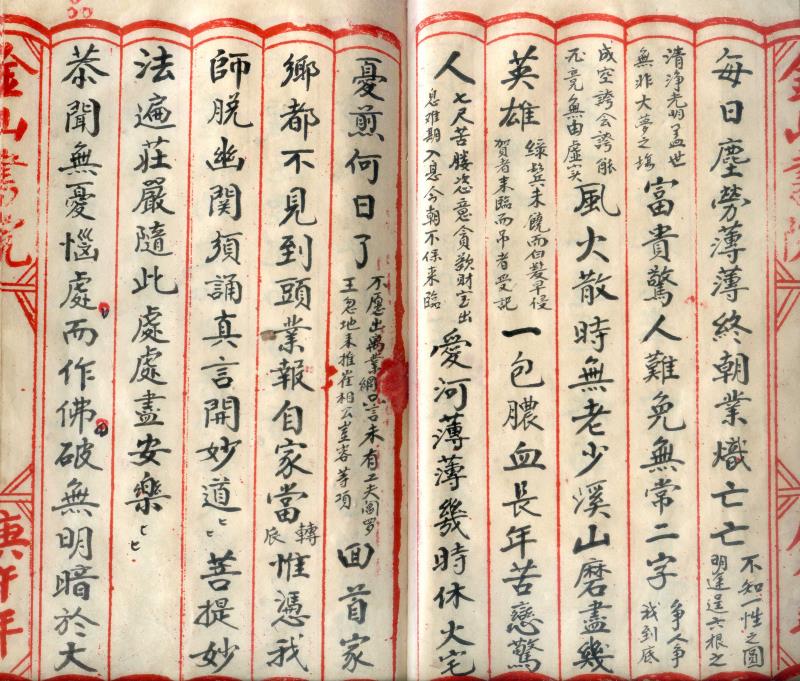 金山書院
每日塵勞薄薄終朝業熾亡亡
不知一性之圓
明逞六根之
清淨光明盖世
無非大夢之場
富貴驚人難免無常二字
爭人爭
我到底
成空誇会誇能
竟無由虛实
風火散時無老少溪山磨盡幾
英雄
緑鬓未饒而白髮早侵
賀者来臨而吊者受記
一包膿血長年苦戀驚
人
七尺苦恣意貪歎财宝出
息难期入息今朝不保来臨
愛河薄薄幾時休火宅
憂煎何日了
万愿出萬業網言未有工夫阎罗
王忽地来推雀相公豈容等项
回首家
鄉都不見到頭業報自家當
轉
辰
惟憑我
師脱幽関須誦真言開妙道
菩提妙
法遍莊嚴隨此處處盡安樂
恭聞無憂惱處而作佛破無明暗於大
金山書院
庚午年